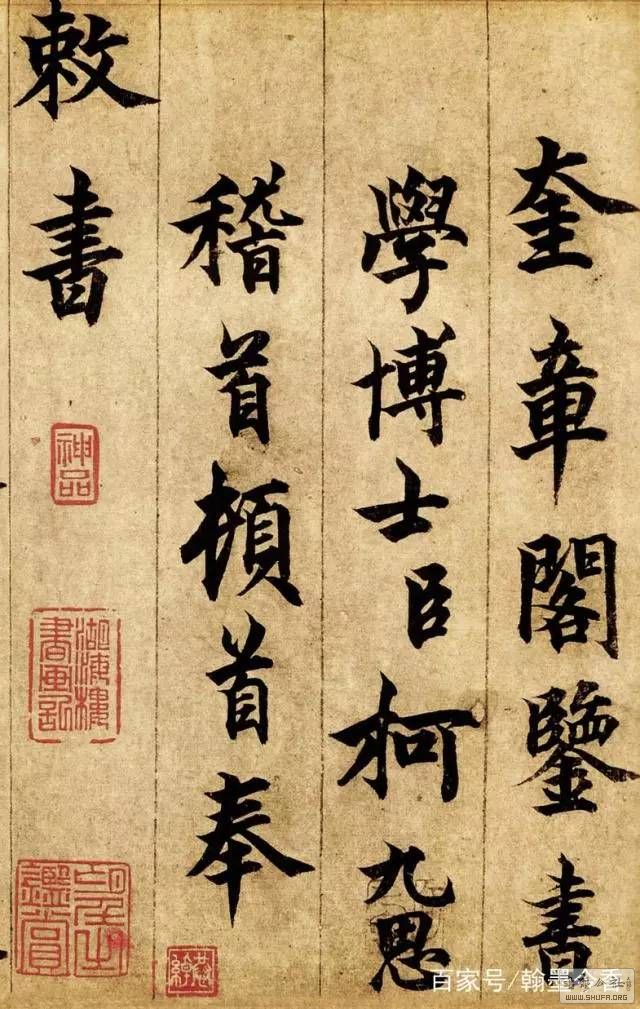 奎章閣鑒書
學博士臣柯九思
稽首頓首奉
敕書
神品
湖海樓
書画記
百家号/翰墨今香
WWW.SHUFA.ORG